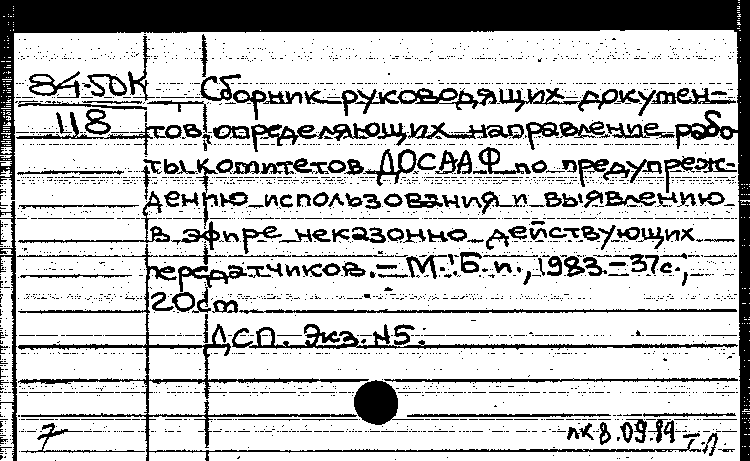 84-50К
118
Сборник руководящих докумен-
тов, определяющих направление рабо
ты комитетов ДОСААФ по предупреж-
дению использования и выявлению
в эфире неказонно действующих
передатчиков. – М.: Б.п., 1983. – 37с.;
20см
ДСП. Экз. №5.
7
лк 8.09.84 Т.Л